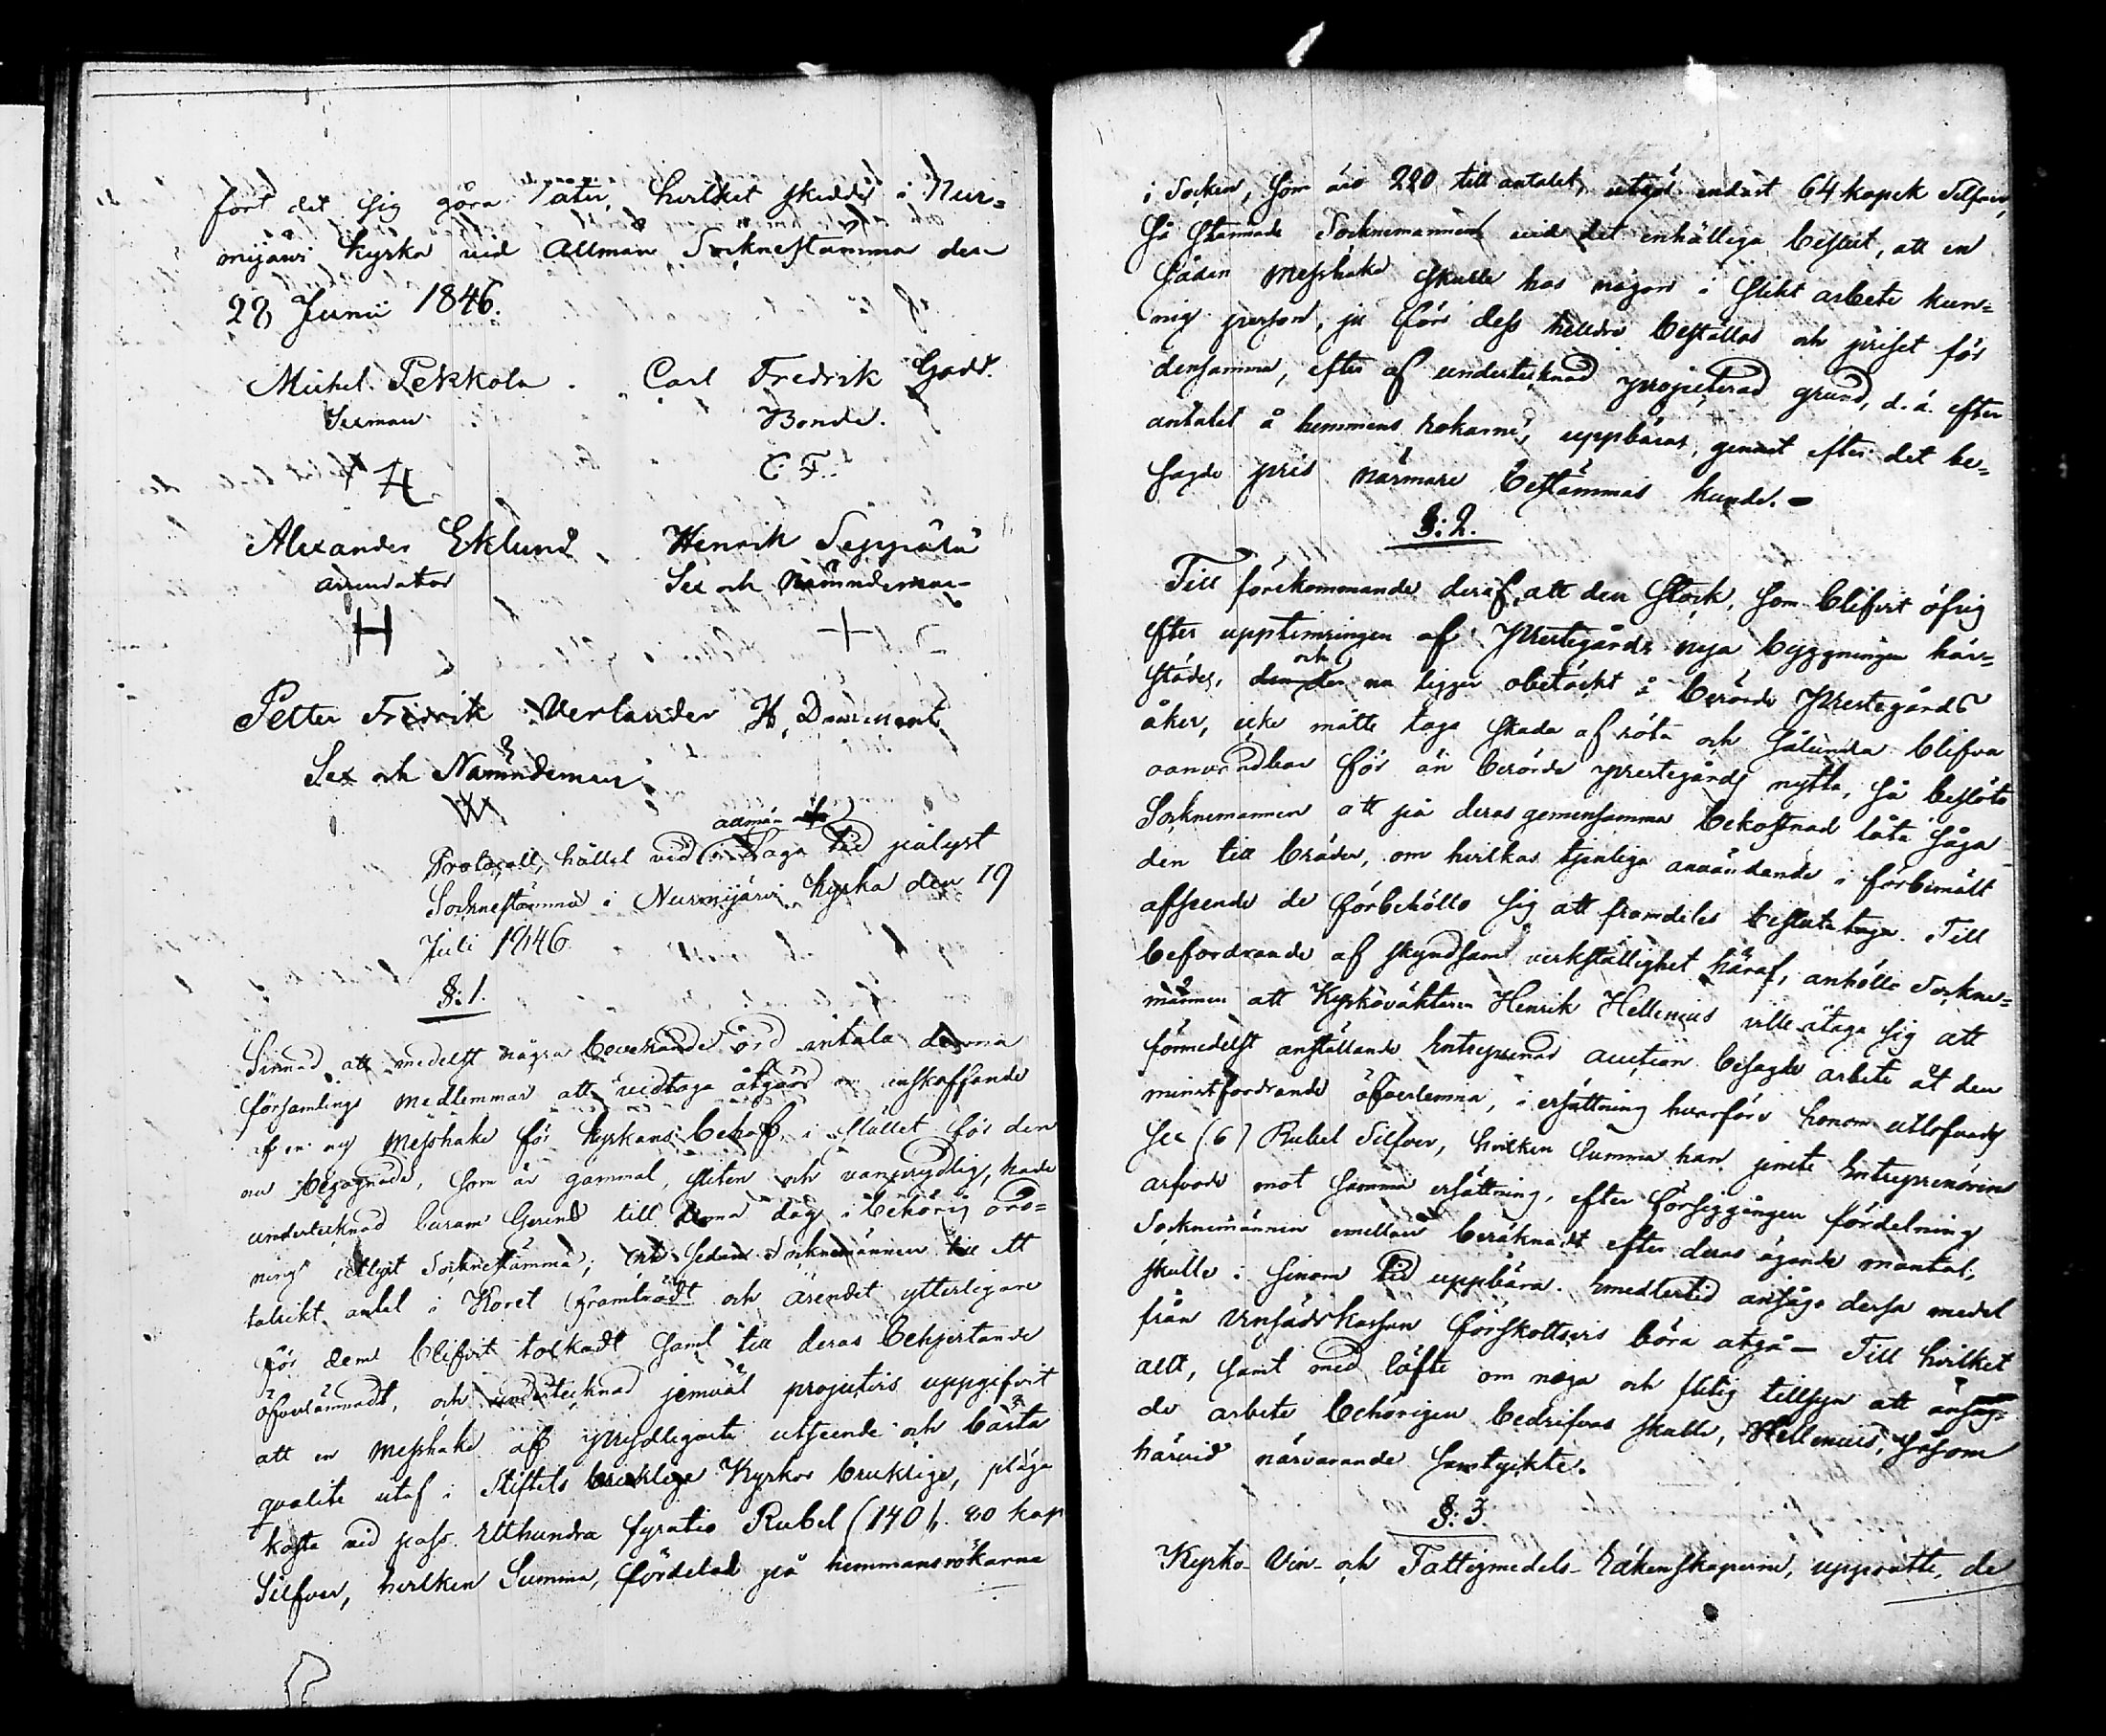 fort det sig göra låter, hvilket skedde i Nur=
mijärvi kyrka vid Allmän Socknestämma den
28 Junii 1846.
Michel Pekkola. Carl Fredrik Gadd.
Sexman Bonde.
C. F.
Alexander Eklund Henrik Seppälä
arrendator Sex och Nämndeman
H +
Petter Fredrik Verlander H.
Sex och Nämndeman
W
allmän
Protocoll, hållet vid i Laga tid pålyst
Socknestämma i Nurmijärvi kyrka den 19
Juli 1846.
§: 1.
Sinnad att medelst några bevekande ord antala denna
församlings medlemmar att vidtaga åtgärd om anskaffande
af en ny Messhake för kyrkans behof, i stället för den
nu begagnade, som är gammal, sliten och vanprydlig, hade
undertecknad till denna dag i behörig ord=
ning utlyst Socknestämma; och sedan Socknemännen till ett
talrikt antal i Koret framträdt och ärendet ytterligare
för dem blifvit tolkadt samt till deras behjertande
öfverlämnadt, och undertecknad jemväl projectvis uppgifvit
att en messhake af prydligaste utseende och bästa
qvalité utaf i Stiftets Kyrkor bruklige, plaga
kosta vid pass Etthundra fyratio Rubel (140) 80 kop
Silfver, hvilken Summa, fördelad på hemmansrökarna
i Socken, som äro 220 till antalet, utgör endast 64 kopek Silfver,
Så stannade Socknemännen vid det enhälliga beslut, att en
sådan messhake skulle hos någon i slikt arbete kun=
nig person, ju för dess heldre beställas och priset för
densamma, efter af undertecknad projecterad grund, d. ä. efter
antalet å hemmans rökarne, uppbäras, genast efter det be=
sagde pris närmare bestämmas kunde. –
§: 2.
Till förekommande deraf, att den Stock, som blifvit öfrig
efter upptimringen af Prestegårds nya byggningen här=
städes, och nu ligger obetäckt å berörde Prestegårds
åker, icke måtte taga skada af röta och sålunda blifva
oanvändbar för än berörde prestegårds nytta, så beslöto
Socknemännen att på deras gemensamma bekostnad låta såga
den till bräder, om hvilkas tjenliga användande i förbemält
afseende de förbehöllo sig att framdeles beslutataga. Till
befordrande af skyndsam verkställighet häraf, anhöllo Sockne=
männen att Kyrkoväktaren Henrik Hellenius ville åtaga sig att
förmedelst anställande Entreprenad auction besagde arbete åt den
minstfordrande öfverlemna, i ersättning hvarföre honom utlofvades
sex (6) Rubel Silfver, hvilken Summa han jemte Entreprenörens
arfvode mot samma ersättning, efter försiggången fördelning
Socknemännen emellan beräknadt efter deras ägande mantal,
skulle i sinom tid uppbära. Emedlertid ansågs dessa medel
från Vinsädskassan förskottsvis böra utgå – Till hvilket
allt, samt med löfte om noga och flitig tillsyn att
de arbete behörigen bedrifvas skulle, Hellenius, såsom
härvid närvarande samtyckte.
§: 3.
Kyrko- Vin- och Fattigmedels- Räkenskaperne, upprätte, de